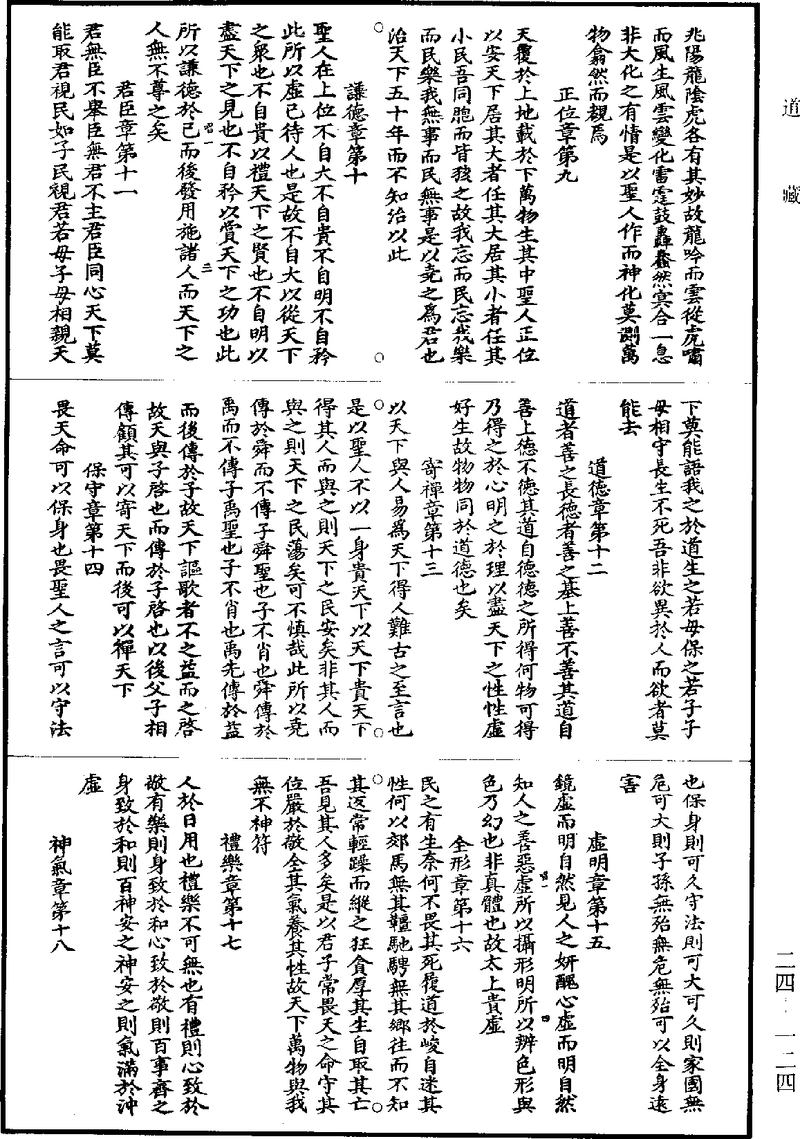 道藏
兆陽龍陰虎各有其妙故龍吟而雲從虎嘯
而風生風雲變化雷霆鼓轟然冥合一息
非大化之有情是以聖人作而神化莫測萬
物翕然而親焉
正位章第九
天覆於上地載於下萬物生其中聖人正位
以安天下居其大者任其大居其小者任其
小民吾同胞而皆孩之故我忘而民忘我樂
而民樂我無事而民無事是以堯之為君也
治天下五十年而不知治以此
謙德章第十
聖人在上位不自大不自貴不自明不自矜
此所以虛已待人也是故不自大以從天下
之衆也不自貴以禮天下之賢也不自明以
盡天下之見也不自矜以賞天下之功也此
所以謙德於已而後發用施諸人而天下之
人無不尊之矣
君臣章第十一
君無臣不舉臣無君不主君臣同心天下莫
能取君視民如子民視君若母子母相親天
下莫能語我之於道生之若母保之若子子
母相守長生不死吾非欲異於人而欲者莫
能去
道德章第十二
道者善之長德者善之基上善不善其道自
善上德不德其道自德德之所得何物可得
乃得之於心明之於理以盡天下之性性虛
好生故物物同於道德也矣
寄禪章第十三
以天下與人易為天下得人難古之至言也
是以聖人不以一身貴天下以天下貴天下
得其人而與之則天下之民安矣非其人而
與之則天下之民蕩矣可不慎哉此所以堯
傳於舜而不傳子舜聖也子不肖也舜傳於
禹而不傳子禹聖也子不肖也禹先傳於益
而後傳於子故天下謳歌者不之益而之啓
故天與子啓也而傳於子啓也以後父子相
傳顧其可以寄天下而後可以禪天下
保守章第十四
畏天命可以保身也畏聖人之言可以守法
也保身則可久守法則可大可久則家國無
危可大則子孫無殆無危無殆可以全身遠
害
虛明章第十五
鏡虛而明自然見人之妍醜心虛而明自然
知人之善惡虛所以攝形明所以辨色形與
色乃幻也非真體也故太上貴虛
全形章第十六
民之有生奈何不畏其死履道於峻自迷其
性何以郊馬無其韁馳騁無其鄉往而不知
其返常輕躁而縱之狂貪厚其生自取其亡
吾見其人多矣是以君子常畏天之命守其
位嚴於敬全其氣養其性故天下萬物與我
無不神符
禮樂章第十七
人於日用也禮樂不可無也有禮則心致於
敬有樂則身致於和心致於敬則百事齊之
身致於和則百神安之神安之則氣滿於沖
虛
神氣章第十八
二四·一二四